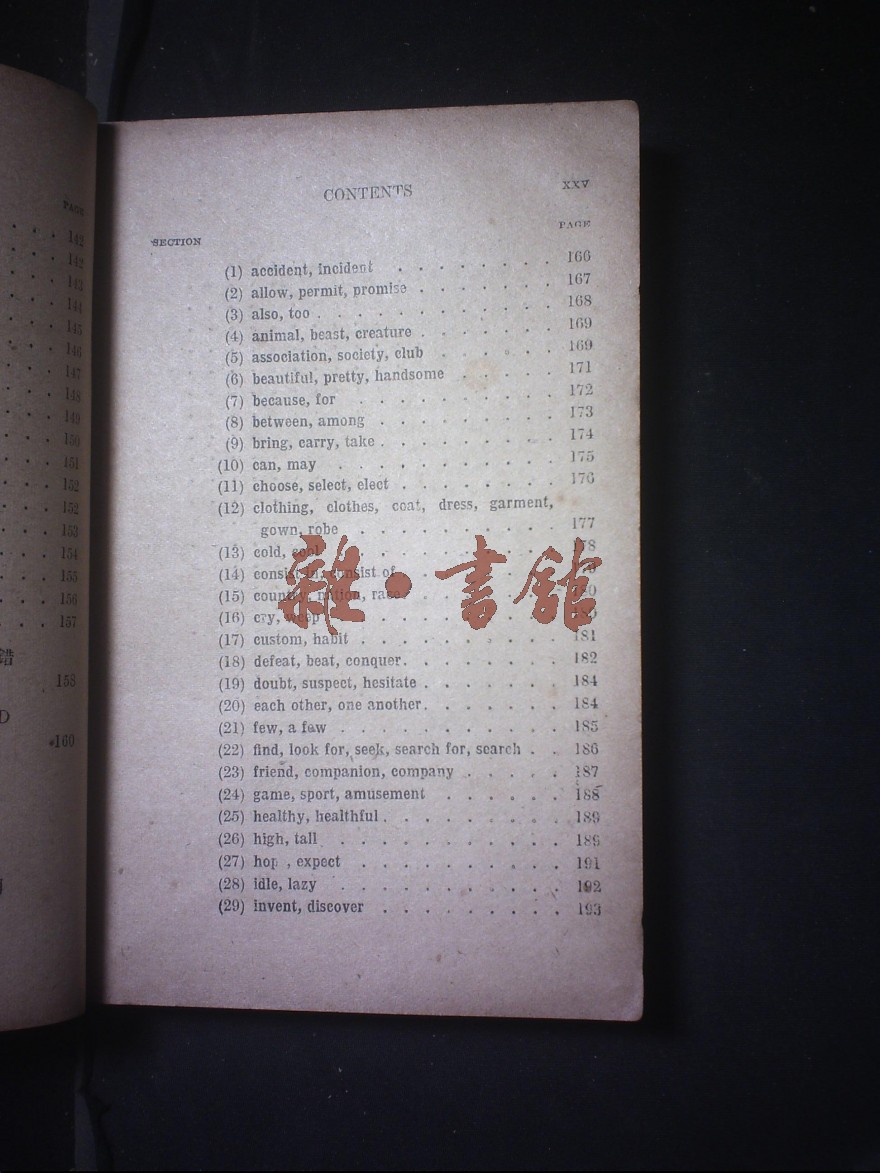 PAGE
142
142
143
144
145
146
147
148
149
150
151
152
152
153
154
155
156
157
158
160
CONTENTS XXV
SECTION PAGE
(1) accident, incident . . . . . . . . 166
(2) allow, permit, promise . . . . . . . 167
(3) also, too . . . . . . . . . . . 168
(4) animal, beast, creature . . . . . . . 169
(5) association, society, club . . . . . . 169
(6) beautiful, pretty, handsome . . . . . 171
(7) because, for . . . . . . . . . . 172
(8) between, among . . . . . . . . . 173
(9) bring, carry, take . . . . . . . . . 174
(10) can, may . . . . . . . . . . . 175
(11) choose, select, elect . . . . . . . . 176
(12) clothing, clothes, coat, dress, garment,
gown, robe . . . . . . . . . . 177
(13) cold, cool . . . . . . . . . 178
(14) consist in, consist of . . . . . . .
(15) country, nation, race . . . . . . . 180
(16) cry, weep . . . . . . . . .
(17) custom, habit . . . . . . . . . 181
(18) defeat, beat, conquer . . . . . . . 182
(19) doubt, suspect, hesitate . . . . . . . 184
(20) each other, one another . . . . . . . 184
(21) few, a few . . . . . . . . . . 185
(22) find, look for, seek, search for, search . . 186
(23) friend, companion, company . . . . . 187
(24) game, sport, amusement . . . . . . 188
(25) healthy, healthful . . . . . . . . . 189
(26) high, tall . . . . . . . . . . . 189
(27) hop , expect . . . . . . . . . . 191
(28) idle, lazy . . . . . . . . . . . 192
(29) invent, discover . . . . . . . . . 193
雜·書館